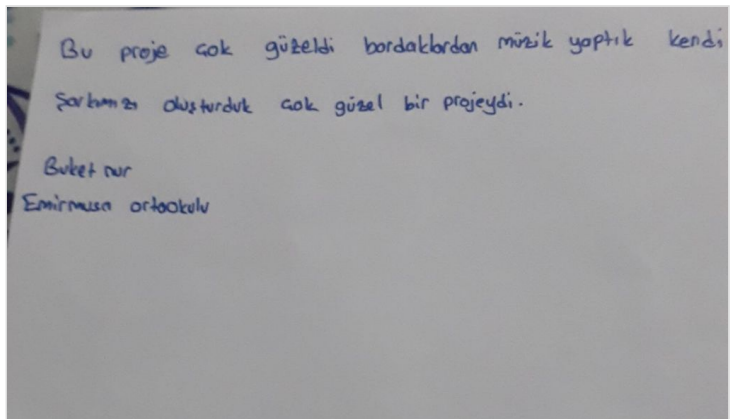 Bu proje çok güzeldi bardaklardan müzik yaptık kendi
Şarkımızı oluşturduk çok güzel bir projeydi.
Buket nur
Emirmusa ortaokulu